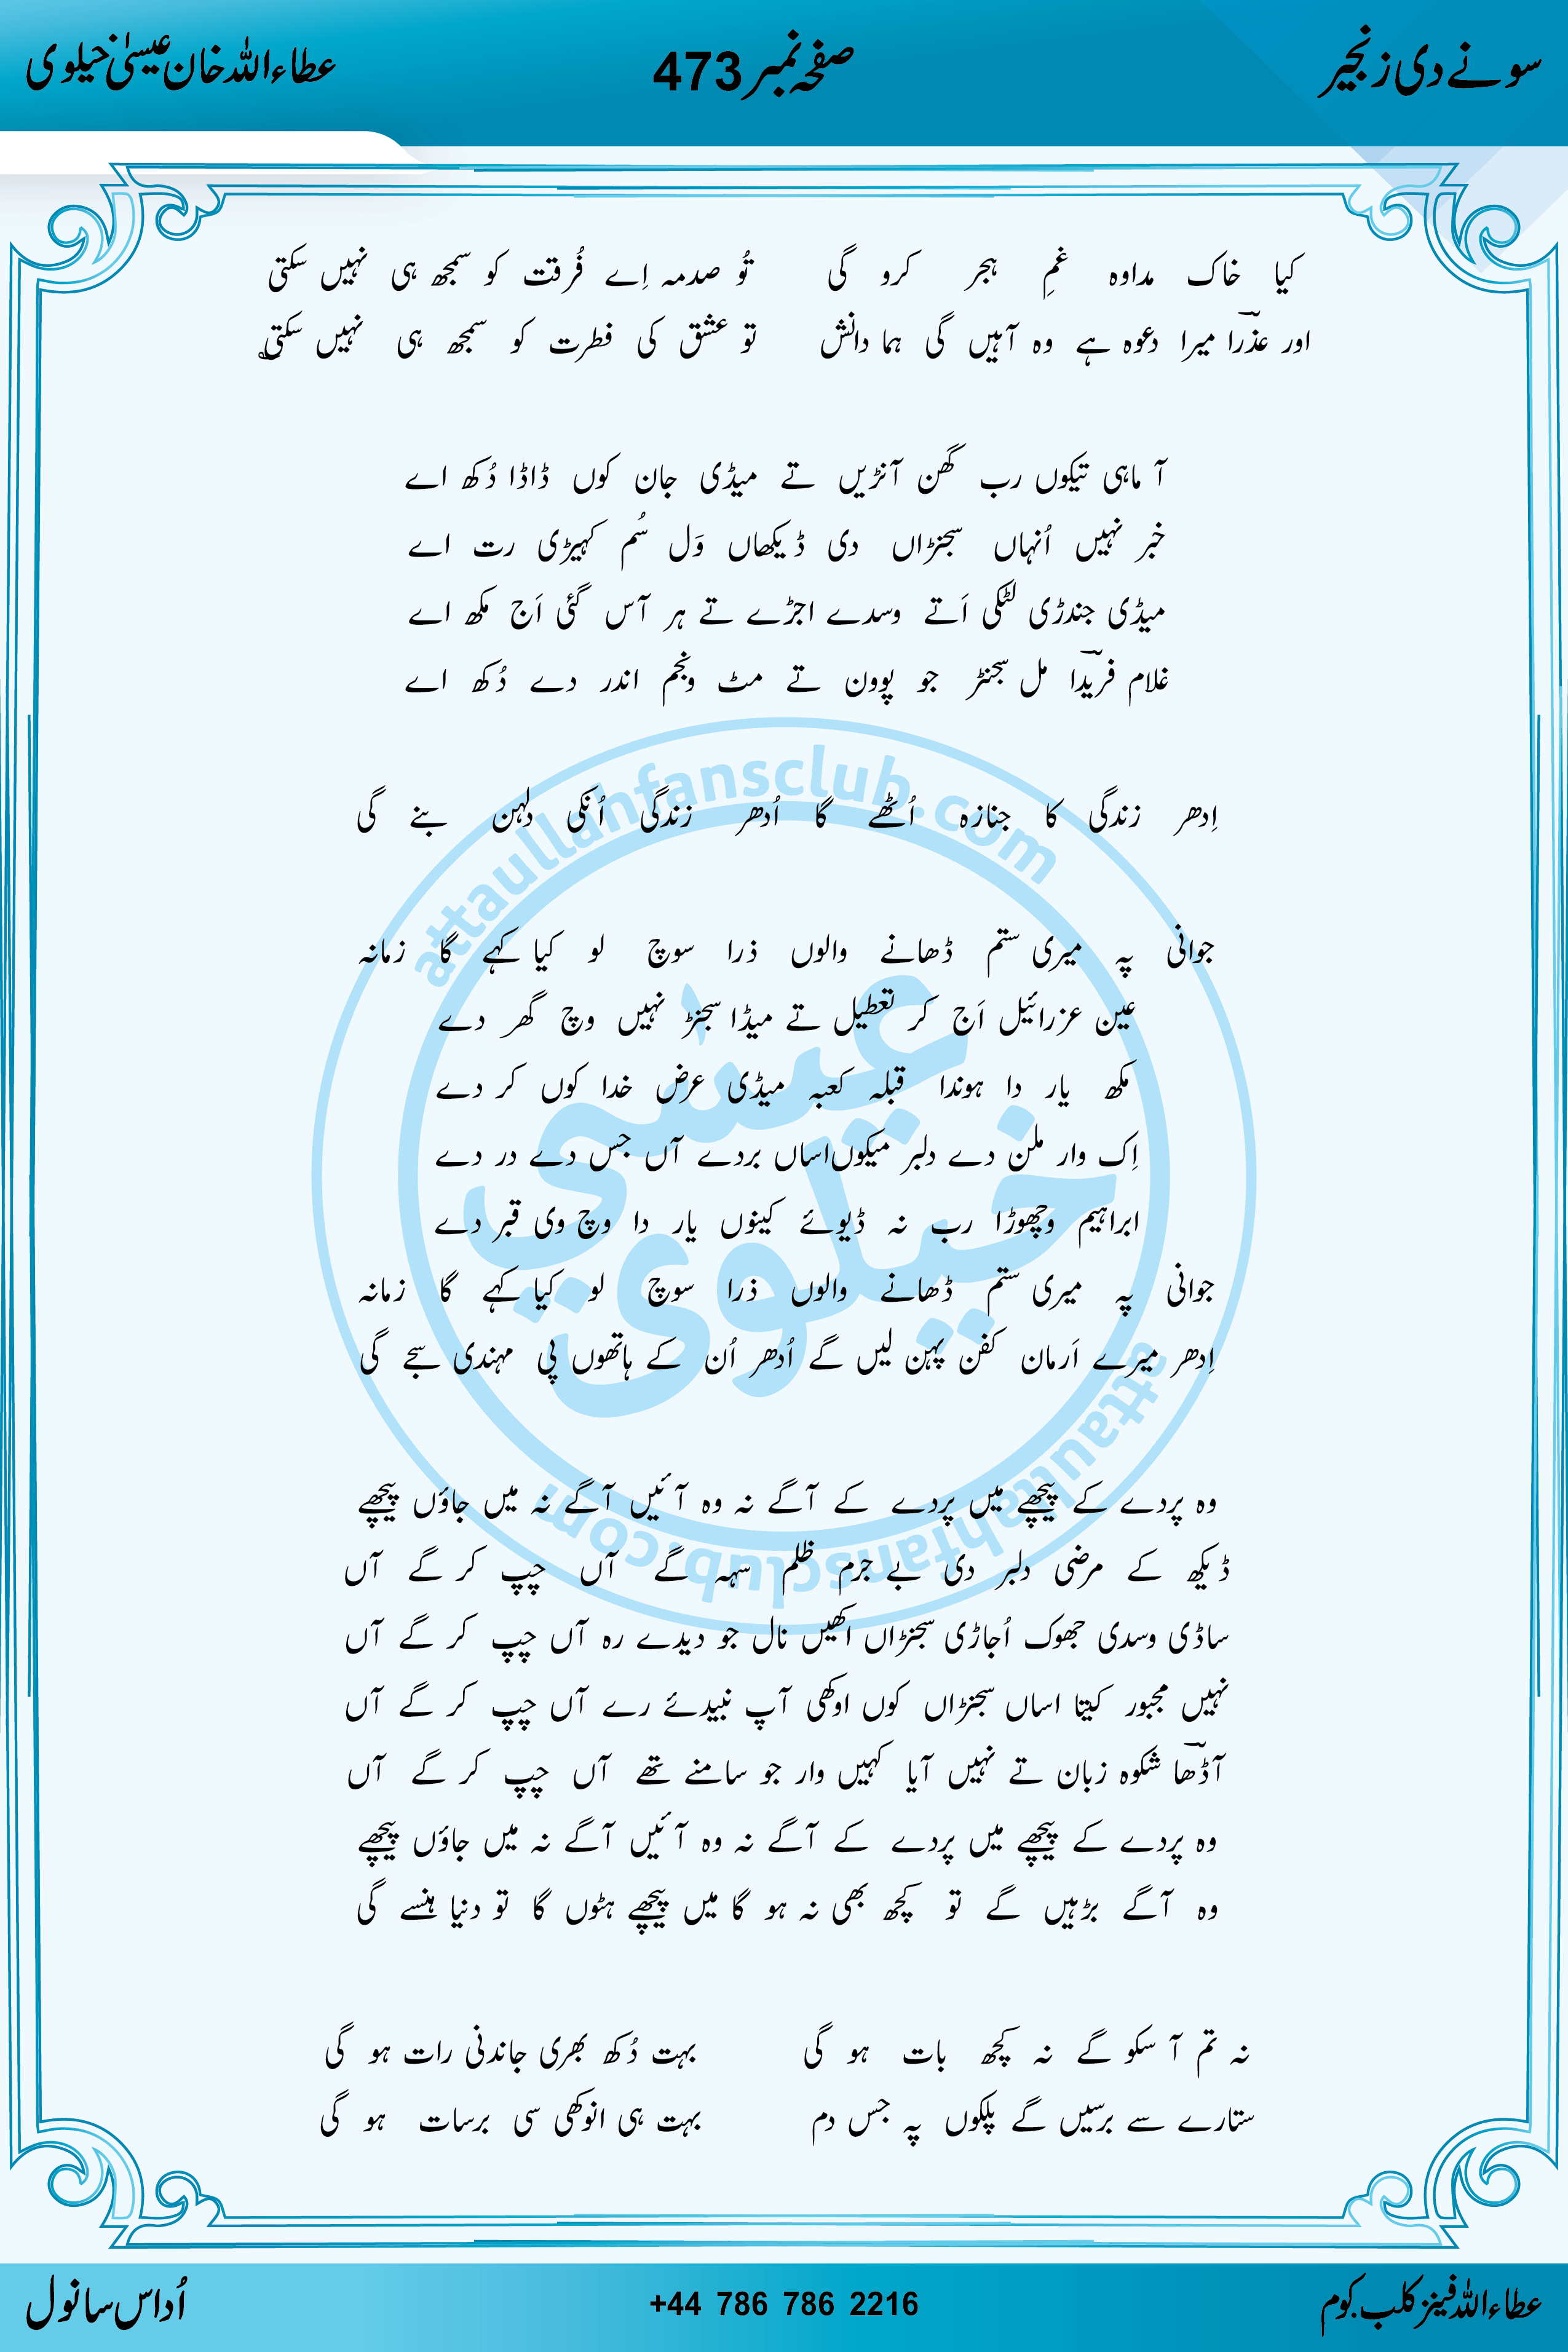 سونے دی زنجیر صفحہ نمبر 473 عطاءاللہ خان عیسیٰ خیلوی
کیا خاک مداوہ غمِ ہجر کرو گی تُو صدمہ اِے فُرقت کو سمجھ ہی نہیں سکتی
اور عذرا میرا دعوہ ہے وہ آہیں گی ہما دانش تو عشق کی فطرت کو سمجھ ہی نہیں سکتی
آ ماہی تیکوں رب گھن آنڑیں تے میڈی جان کوں ڈاڈا دُکھ اے
خبر نہیں اُنہاں سجنڑاں دی ڈیکھاں وَل سُم کہیڑی رت اے
میڈی جندڑی لٹکی اَتے وسدے اجڑے تے ہر آس گئی اَج مکھ اے
غلام فریدا مل سجنڑ جو پوون تے مٹ ونجم اندر دے دُکھ اے
اِدھر زندگی کا جنازہ اُٹھے گا اُدھر زندگی اُنکی دلہن بنے گی
جوانی پہ میری ستم ڈھانے والوں ذرا سوچ لو کیا کہے گا زمانہ
عین عزرائیل اَج کر تعطیل تے میڈا سجنڑ نہیں وچ گھر دے
مکھ یار دا ہوندا قبلہ کعبہ میڈی عرض خدا کوں کر دے
اِک وار ملن دے دلبر میکوں اساں بردے آں جس دے در دے
ابراہیم وچھوڑا رب نہ ڈیوئے کینوں یار دا وچ وی قبر دے
جوانی پہ میری ستم ڈھانے والوں ذرا سوچ لو کیا کہے گا زمانہ
اِدھر میرے اَرمان کفن پہن لیں گے اُدھر اُن کے ہاتھوں پی مہندی سجے گی
وہ پردے کے پیچھے میں پردے کے آگے نہ وہ آئیں آگے نہ میں جاؤں پیچھے
ڈیکھ کے مرضی دلبر دی بے جرم ظلم سہہ گے آں چپ کر گے آں
ساڈی وسدی جھوک اُجاڑی سجنڑاں اکھیں نال جو دیدے رہ آں چپ کر گے آں
نہیں مجبور کیتا اساں سجنڑاں کوں اوکھی آپ نبیدئے رے آں چپ کر گے آں
آڈھا شکوہ زبان تے نہیں آیا کہیں وار جو سامنے تھے آں چپ کر گے آں
وہ پردے کے پیچھے میں پردے کے آگے نہ وہ آئیں آگے نہ میں جاؤں پیچھے
وہ آگے بڑہیں گے تو کچھ بھی نہ ہو گا میں پیچھے ہٹوں گا تو دنیا ہنسے گی
نہ تم آ سکو گے نہ کچھ بات ہو گی بہت دُکھ بھری جاندنی رات ہو گی
ستارے سے برسیں گے پلکوں پہ جس دم بہت ہی انوکھی سی برسات ہو گی
عطاءاللہ فینز کلب.کوم +44 786 786 2216 اُداس سانول
attaullahfansclub.com
عیسٰی
خیلوی
attaullahfansclub.com